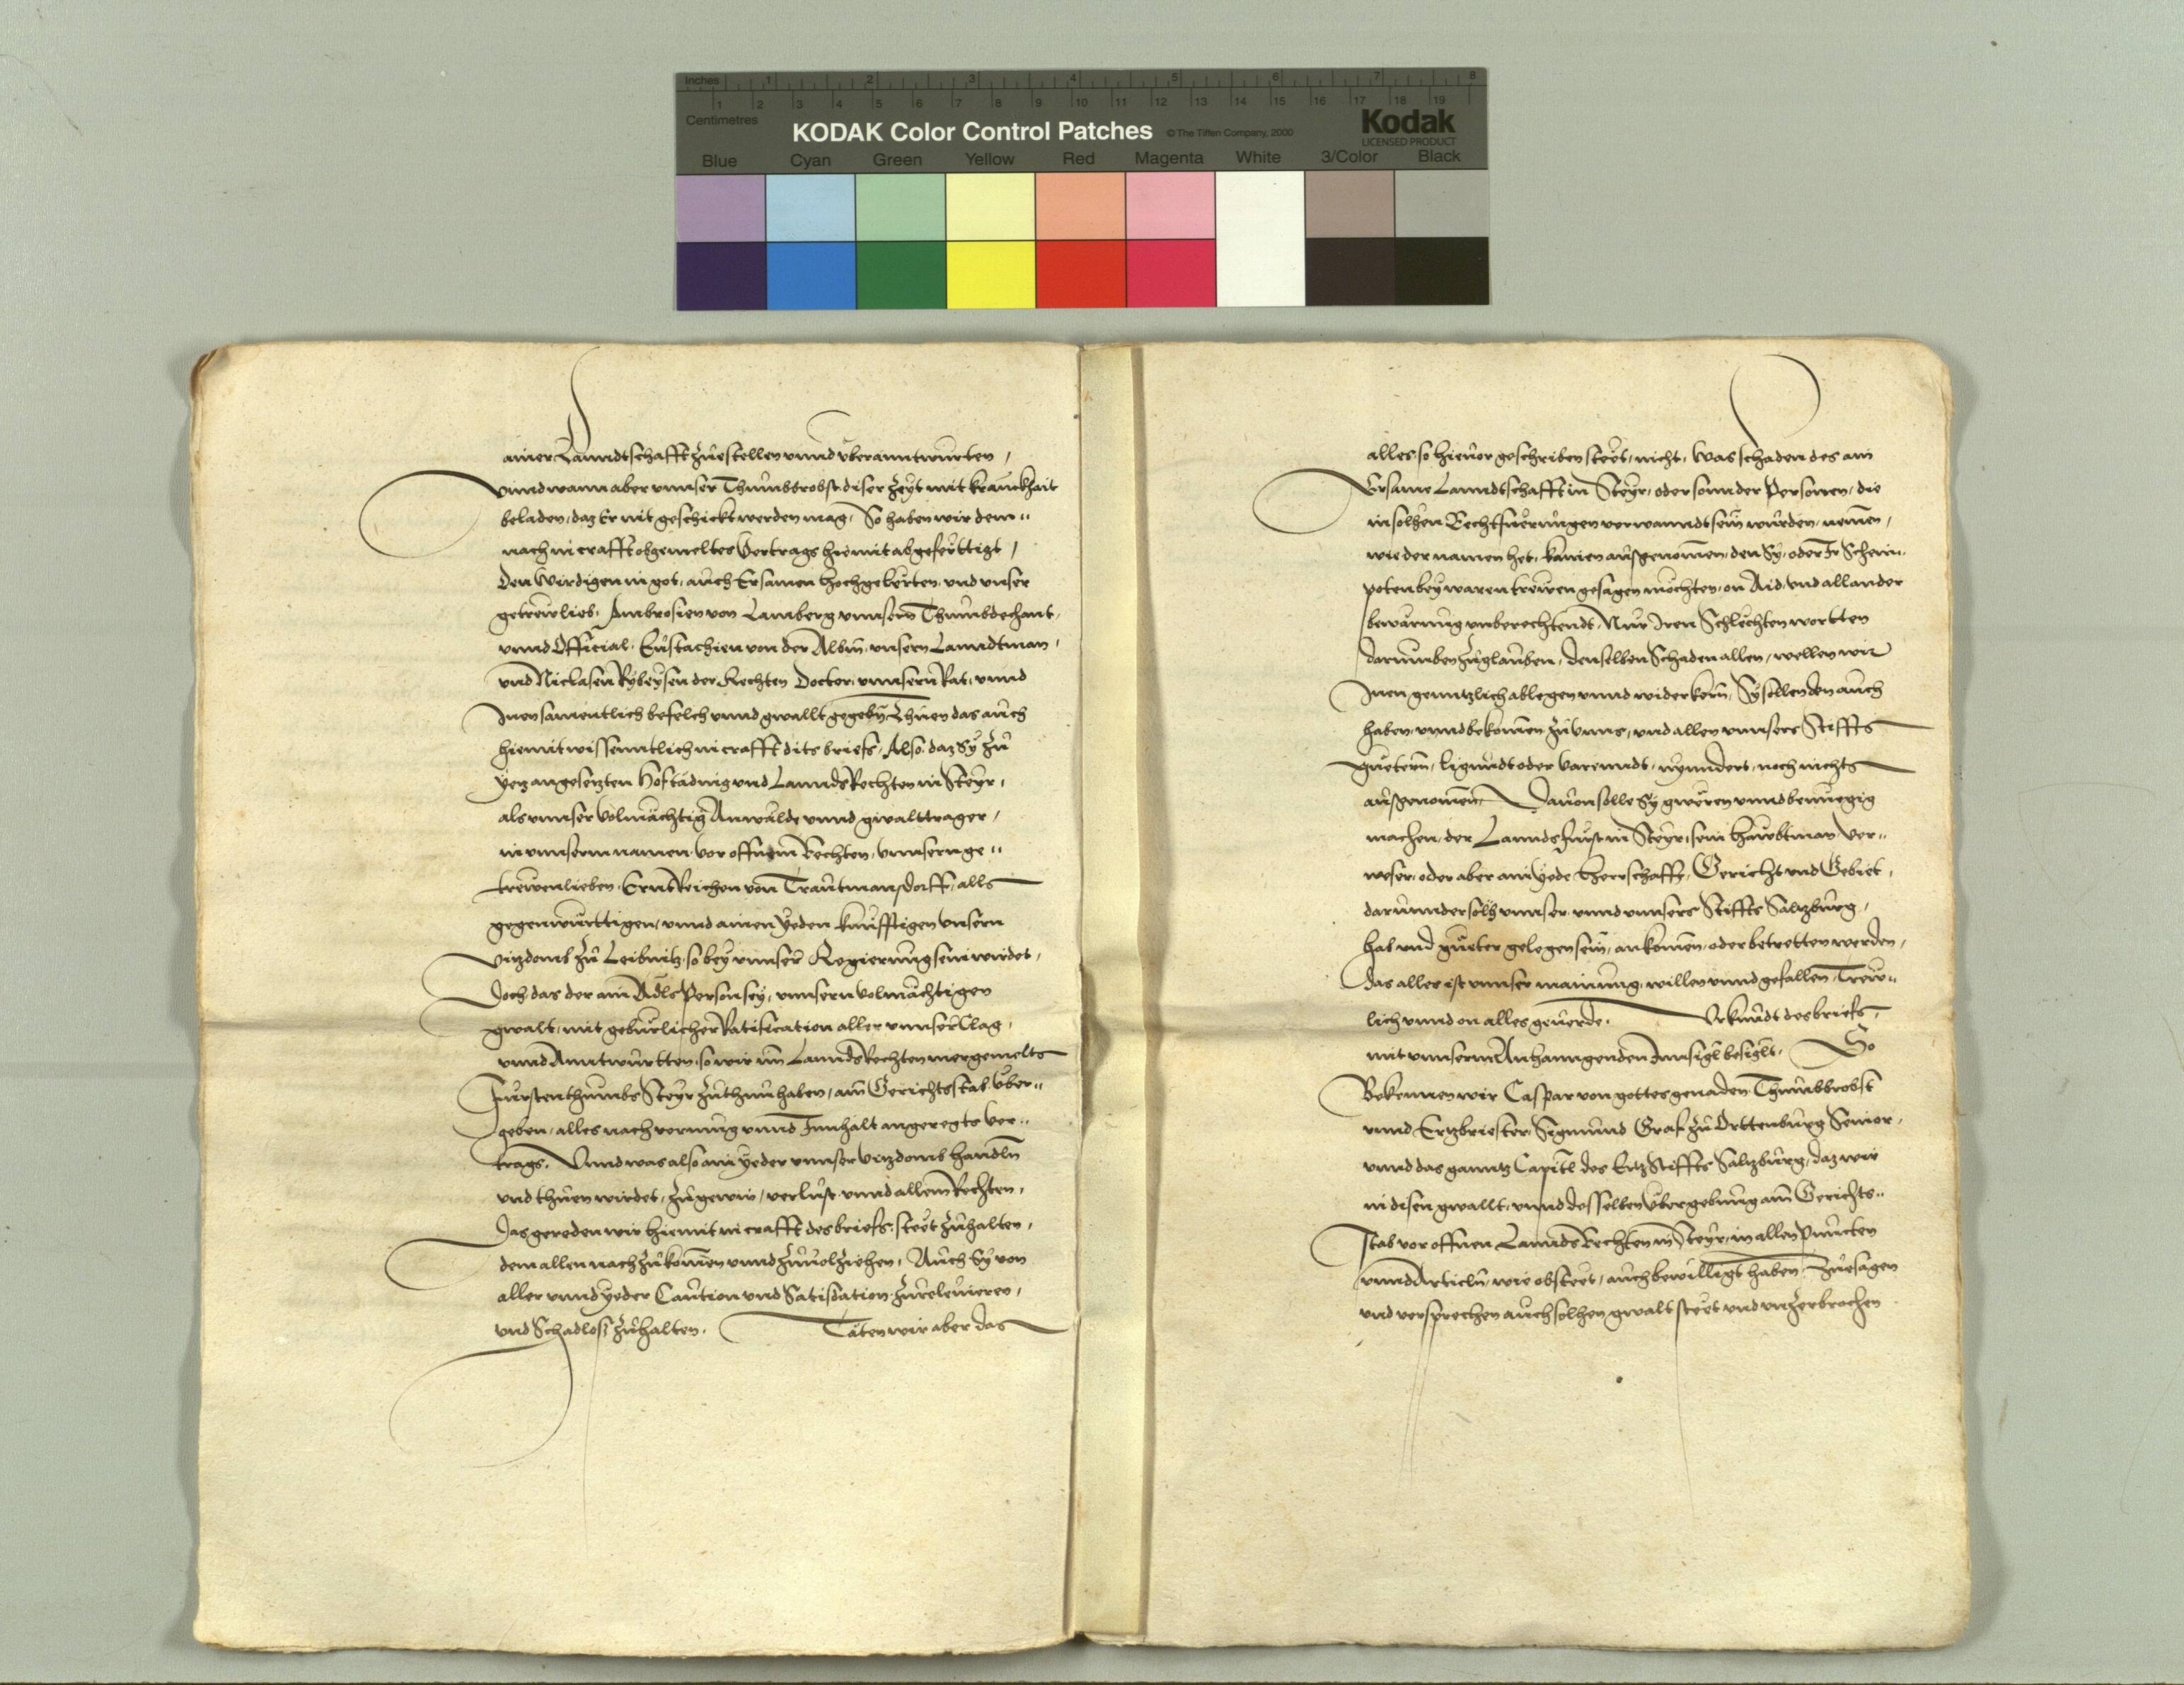 Inches 1 2 3 4 5 6 7 8
1 2 3 4 5 6 7 8 9 10 11 12 13 14 15 16 17 18 19
Centimetres
KODAK Color Control Patches © The Tiffen Company, 2000 Kodak
LICENSED PRODUCT
Blue Cyan Green Yellow Red Magenta White 3/Color Black
ainer Lanndtschafft zuestellen vnnd überanntwurten /
vnnd wann aber vnnser Thumbbrobst diser zeyt mit kranckhait
beladen, daz Er nit geschickt werden mag, So haben wir dem=
nach in crafft obgemeltes Vertrags hiemit abgeferttigt /
Den wirdigen in got, auch Ersamen hochgelerten, vnd vnser
getrew lieb, Ambrosien von Lamberg vnnsern Thumbdechant,
vnnd Official, Eustachien von der Albm, vnsern Lanndtman,
vnd Niclasen Rybeysen der Rechten Doctor, vnnsern Rat, vnnd
Inen samentlich befelch vnnd gwallt gegeben, Thuen das auch
hiemit wissenntlich in crafft dits briefs, Also daz Sy zu
yetz angesetzten Hoftäding vnd Lannds Rechten in Steyr,
als vnnser volmächtig Anwälde vnnd gwalttrager,
in vnnserm namen, vor offnem Rechten, vnnserm ge=
trewen lieben, Ernnreichen von Trautmanstorff, alls
gegenwürttigen, vnnd ainen yeden künfftigen vnsern
vitzdomb zu Leibnitz, so bey vnnser Regierung sein wirdet,
Doch das der ain Adls Person sey, vnnsern volmächtigen
gwalt, mit gebürlicher Ratification aller vnnser Clag,
vnnd Anntwurtten, so wir im Lannds Rechten mergemelts
Fürstenthumbs Steyr zuthun haben, am Gerichtsstab über=
geben, alles nach vermüg vnnd Innhalt angeregts ver=
trags. Vnnd was also ain yeder vnnser vitzdomb handln
vnd thuen wirdet, zu gewin, verlust, vnnd allem Rechten,
Das gereden wir hiemit in crafft des briefs, steet zuhalten,
dem allen nachzukomen vnnd zuuolziehen, Auch Sy von
aller vnnd yeder Caution vnd Satisdation zureleuieren,
vnd Schadloß zuhalten. Täten wir aber das
alles so hieuor geschriben steet, nicht, Was schaden des ain
Ersame Lanndtschafft in Steyr, oder sonnder Personen, die
in solhen Rechtfuerungen verwanndt sein wurden, nemen,
wie der namen het, kainen außgenomen, den Sy, oder Ir Schein
poten bey waren trewen gesagen möchten, on Aid, vnd all ander
bewärung vnberechtendt, Nur Iren Schlechten wortten
darumben zuglauben, denselben Schaden allen, wellen wir
Inen genntzlich ablegen vnnd widerkern, Sy sollen den auch
haben vnnd bekomen zu vnns, vnd allen vnnsers Stiffts
güetern, ligundt oder varenndt, nynndert, noch nichts
außgenomen, Dauon solle Sy gweren vnnd benüegig
machen, der Lanndsfürst in Steyr, sein haubtman, ver=
weser, oder aber ain yede Herrschafft, Gericht vnd Gebiet,
darunnder solh vnnser vnnd vnnsers Stiffts Saltzburg,
hab vnd güeter gelegen sein, ankomen, oder betretten werden,
das alles ist vnnser mainung, willen vnnd gefallen, Trew=
lich vnnd on alles geuerde. Vrkundt des briefs,
mit vnnserm Anhanngenden Innsigl besiglt, So
Bekennen wir Caspar von gottes genaden Thumbbrobst
vnnd Ertzbriester, Sigmund Graf zu Orttenburg Senior,
vnnd das ganntz Capitl des Ertz Stiffts Saltzburg, daz wir
in disen gwallt, vnnd desselben Vbergebung am Gerichts=
stab vor offnen Lannds Rechten in Steyr, in allen puncten
vnnd Articln, wie obsteet, auch bewilligt haben, Zuesagen
vnd versprechen auch solhen gwalt steet vnd vnzerbrochen